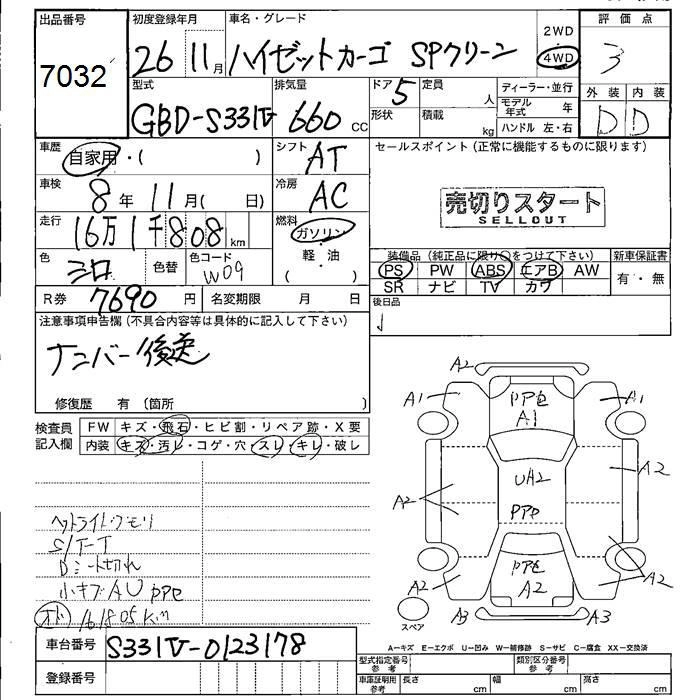 出品番号 初度登録年月 車名・グレード 2WD 評価点
7032 26年11月 ハイゼットカーゴ SPクリーン 4WD 3
型式 排気量 ドア 定員 ディーラー・並行 外装 内装
GBD-S331V 660cc 5 人 モデル年式 年 D D
形状 積載 kg ハンドル 左・右
車歴 自家用・( ) シフト AT セールスポイント(正常に機能するものに限ります)
車検 8年 11月( 日) 冷房 AC
売切りスタート
SELLOUT
走行 16万1千808km 燃料 ガソリン
軽・油
( )
色 シロ 色替 色コード W09
装備品(純正品に限り○をつけて下さい) 新車保証書
PS PW ABS エアB AW 有・無
SR ナビ TV カワ
R券 7690円 名変期限 月 日 後日品
注意事項申告欄(不具合内容等は具体的に記入して下さい)
ナンバー後送
修復歴 有(箇所 )
検査員記入欄 FW キズ・飛石・ヒビ割・リペア跡・X要
内装 キズ・汚レ・コゲ・穴・スレ・キレ・破レ
ヘッドライトクモリ
S/T-T
Dシート切れ
小キズAU PPe
オド 161805km
A2
A1 PPe A1
A1
A2 UA2 A2
PPe
A2 PPe A2 A2
A3 A3
スペア
A−キズ E−エクボ U−凹み W−補修跡 S−サビ C−腐食 XX−交換済
車台番号 S331V-0123178
登録番号
型式指定番号 参考 類別区分番号 参考
車庫証明用 参考 長さ cm 幅 cm 高さ cm